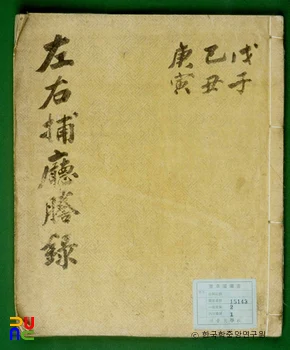 戊子
己丑
庚寅
左右捕廳謄錄
15143
ⓒ 한국학중앙연구원